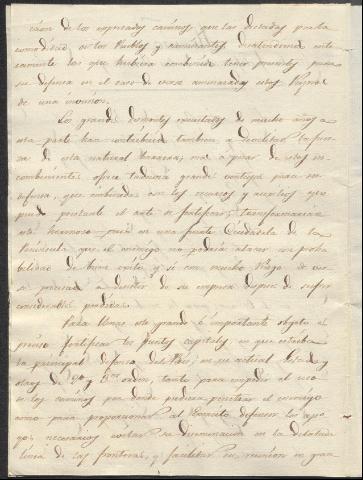 cion de los expresados caminos que las dictadas por la
comodidad de los Pueblos y caminantes, desatendiendo entera-
mente los que hubiera convenido tener presentes para
su defensa en el caso de verse amenazados estos Reynos
de una invasion.
Los grandes desmontes executados de muchos años a
esta parte han contribuido tambien a devilitar la fuer-
za de esta natural barrera, mas a pesar de estos in-
combenientes ofrece todavia grandes ventajas para su
defensa, que combinadas con los recursos y auxilios que
puede prestarle el arte de fortificar, transformarian
este hermoso país en una fuerte Ciudadela de la
Peninsula que el enemigo no podria atacar con proba-
bilidad de buen exito, y si con mucho riesgo de verse
precisado a desistir de su empresa despues de sufrir
considerables perdidas.
Para llenar este grande é importante objeto es
preciso fortificar los puntos capitales en que estriba
la principal defensa del Pais en su actual estado, y
otros de 2.º y 3.er orden, tanto para impedir el uso
de los caminos por donde pudiera penetrar el enemigo
como para proporcionar al Exercito defensor los apo-
yos necesarios, evitar su diseminacion en la dilatada
linea de las fronteras, y facilitar su reunion en gran